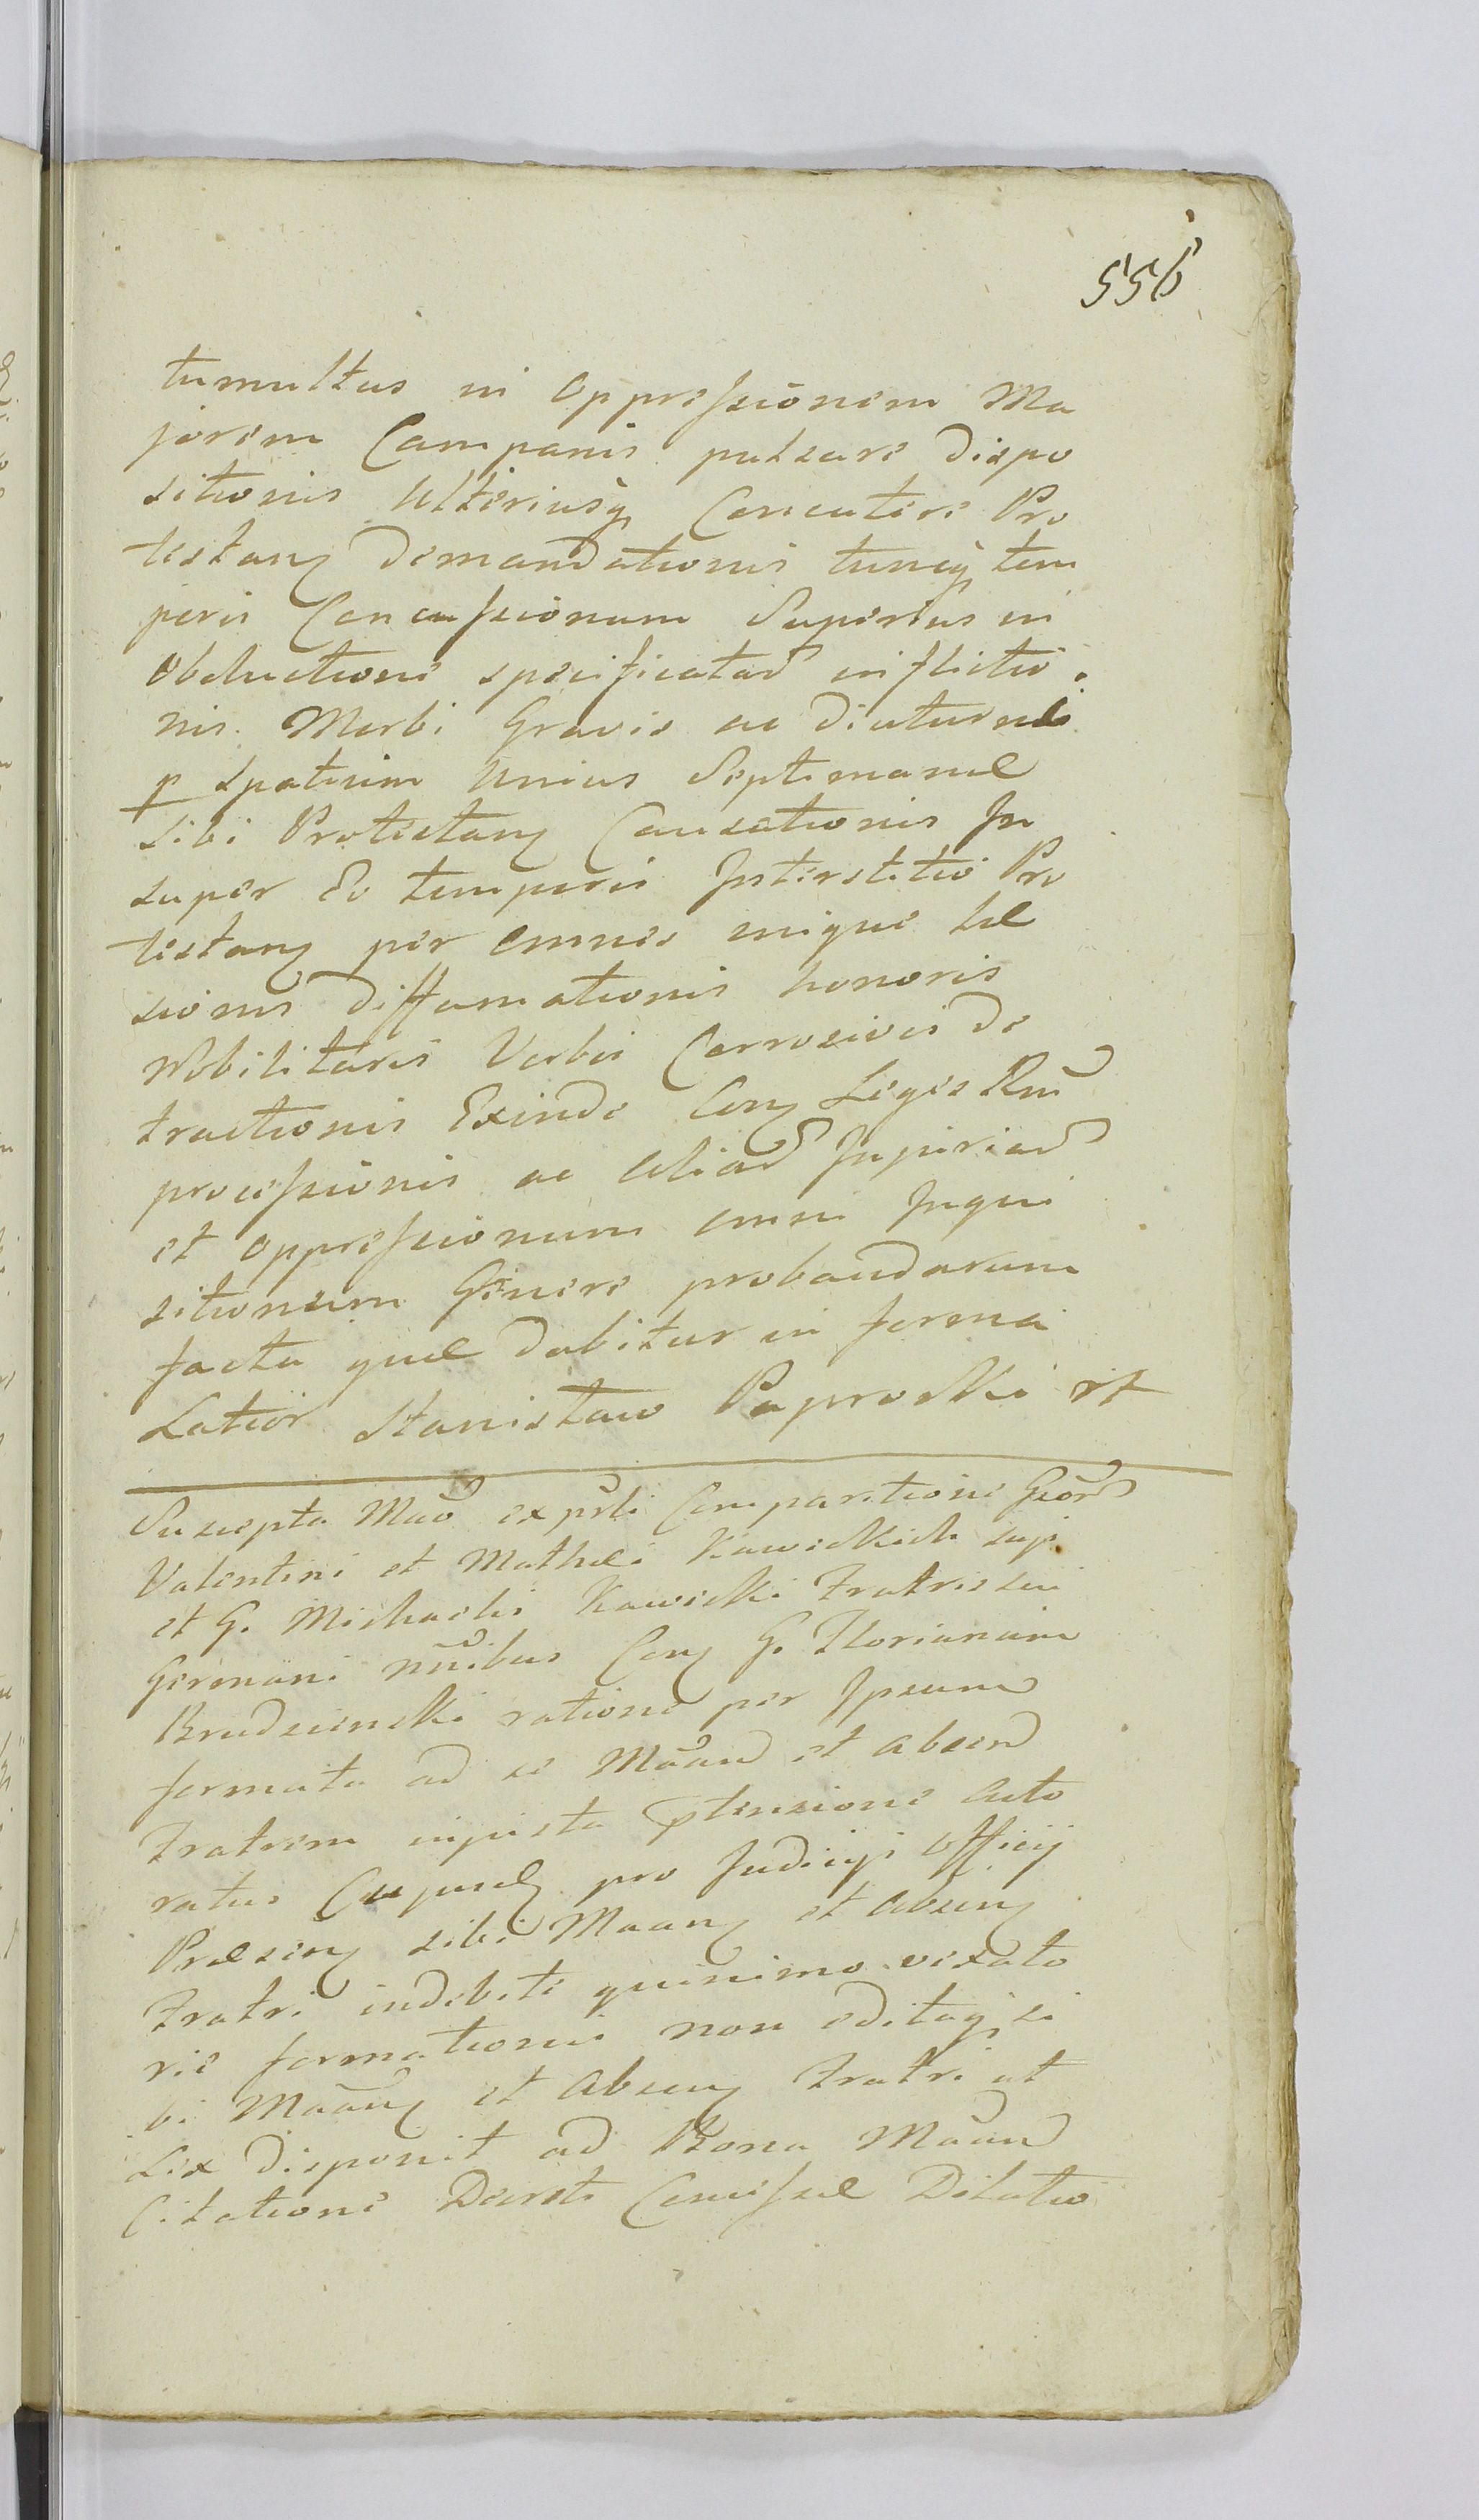 556
tumultus in oppressionem Ma
jorem Campanis pulsare dispo
sitionis Ulteriusq Concutere Pro
testang demandationis tuncq tem
poris Concussionum Superius in
obductione specificatar inflictio
nis Morbi Gravis ac diuturni
p spatium unius Septimanæ
sibi Protestang Causationis In
super Eo temporis Interstitio Pro
testang per omnes inique læ
sionis diffamationis honoris
Nobilitaris Verbis Corrosivis de
tractionis Exinde Cong Leges Rni
processionis ac aliar Injuriar
et oppressionum omni Inqui
sitionum Genere probandarum
facta quæ dabitur in forma
Latior Stanisław Paprocki rt
Suscepta Mao ex psli Comparitione Gsor
Valentini et Mathæi Kawieckich sup
et G. Michaelis Kawiecki Fratris sui
Germani nnibus Cong G. Florianum
Brudzienski ratione per Ipsum
formata ad se Maan et absen
Fratrem injusta ptensione auto
ratus Cujusq pro Judicij officij
Præseng sibi Maang et abseng
Fratri indebite quinimo vexato
rie formationis non editaq si
bi Maang et abseng Fratri ut
Lex disponit ad Bona Maan
Citatione Decreti Concessæ Dilatio